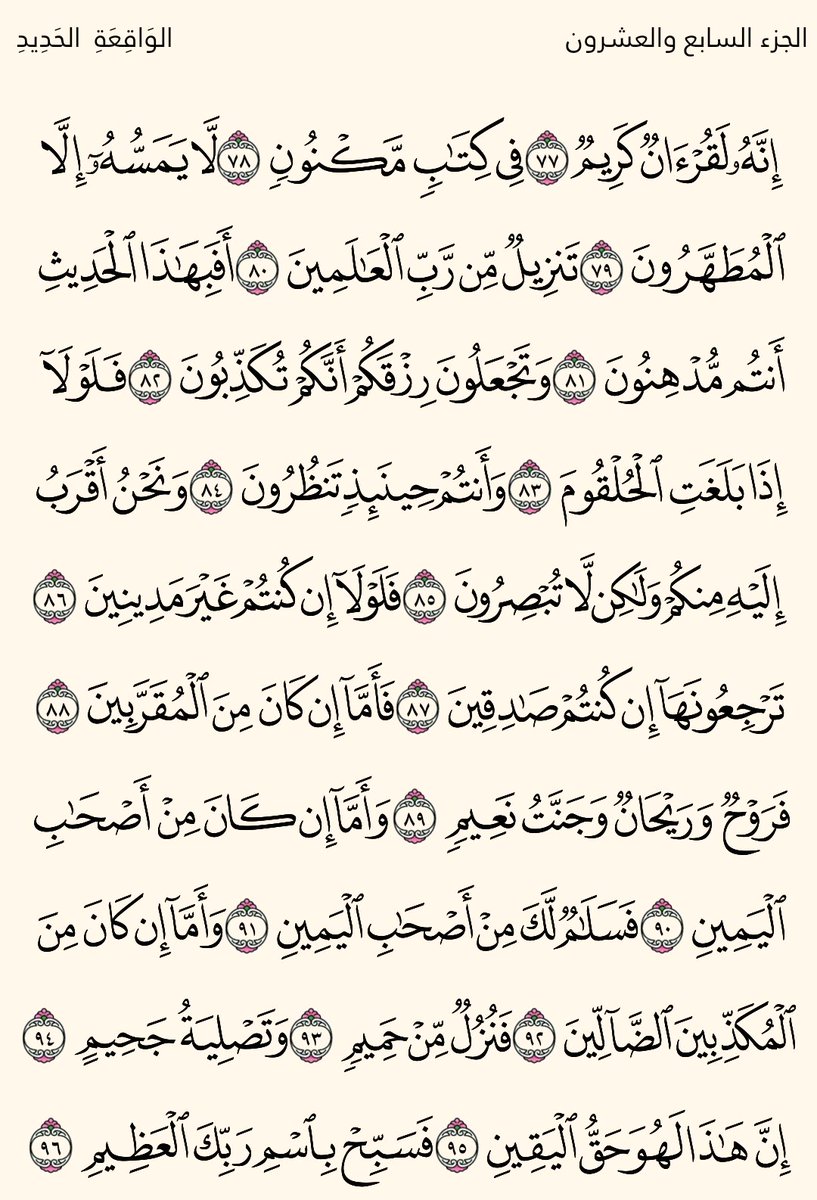 الجزء السابع والعشرون
الوَاقِعَةِ الحَدِيدِ
إِنَّهُۥ لَقُرۡءَانٌ كَرِيمٌ ٧٧ فِي كِتَٰبٍ مَّكۡنُونٍ ٧٨ لَّا يَمَسُّهُۥٓ إِلَّا
ٱلۡمُطَهَّرُونَ ٧٩ تَنزِيلٌ مِّن رَّبِّ ٱلۡعَٰلَمِينَ ٨٠ أَفَبِهَٰذَا ٱلۡحَدِيثِ
أَنتُم مُّدۡهِنُونَ ٨١ وَتَجۡعَلُونَ رِزۡقَكُمۡ أَنَّكُمۡ تُكَذِّبُونَ ٨٢ فَلَوۡلَآ
إِذَا بَلَغَتِ ٱلۡحُلۡقُومَ ٨٣ وَأَنتُمۡ حِينَئِذٍ تَنظُرُونَ ٨٤ وَنَحۡنُ أَقۡرَبُ
إِلَيۡهِ مِنكُمۡ وَلَٰكِن لَّا تُبۡصِرُونَ ٨٥ فَلَوۡلَآ إِن كُنتُمۡ غَيۡرَ مَدِينِينَ ٨٦
تَرۡجِعُونَهَآ إِن كُنتُمۡ صَٰدِقِينَ ٨٧ فَأَمَّآ إِن كَانَ مِنَ ٱلۡمُقَرَّبِينَ ٨٨
فَرَوۡحٌ وَرَيۡحَانٌ وَجَنَّتُ نَعِيمٍ ٨٩ وَأَمَّآ إِن كَانَ مِنۡ أَصۡحَٰبِ
ٱلۡيَمِينِ ٩٠ فَسَلَٰمٌ لَّكَ مِنۡ أَصۡحَٰبِ ٱلۡيَمِينِ ٩١ وَأَمَّآ إِن كَانَ مِنَ
ٱلۡمُكَذِّبِينَ ٱلضَّآلِّينَ ٩٢ فَنُزُلٌ مِّنۡ حَمِيمٍ ٩٣ وَتَصۡلِيَةُ جَحِيمٍ ٩٤
إِنَّ هَٰذَا لَهُوَ حَقُّ ٱلۡيَقِينِ ٩٥ فَسَبِّحۡ بِٱسۡمِ رَبِّكَ ٱلۡعَظِيمِ ٩٦